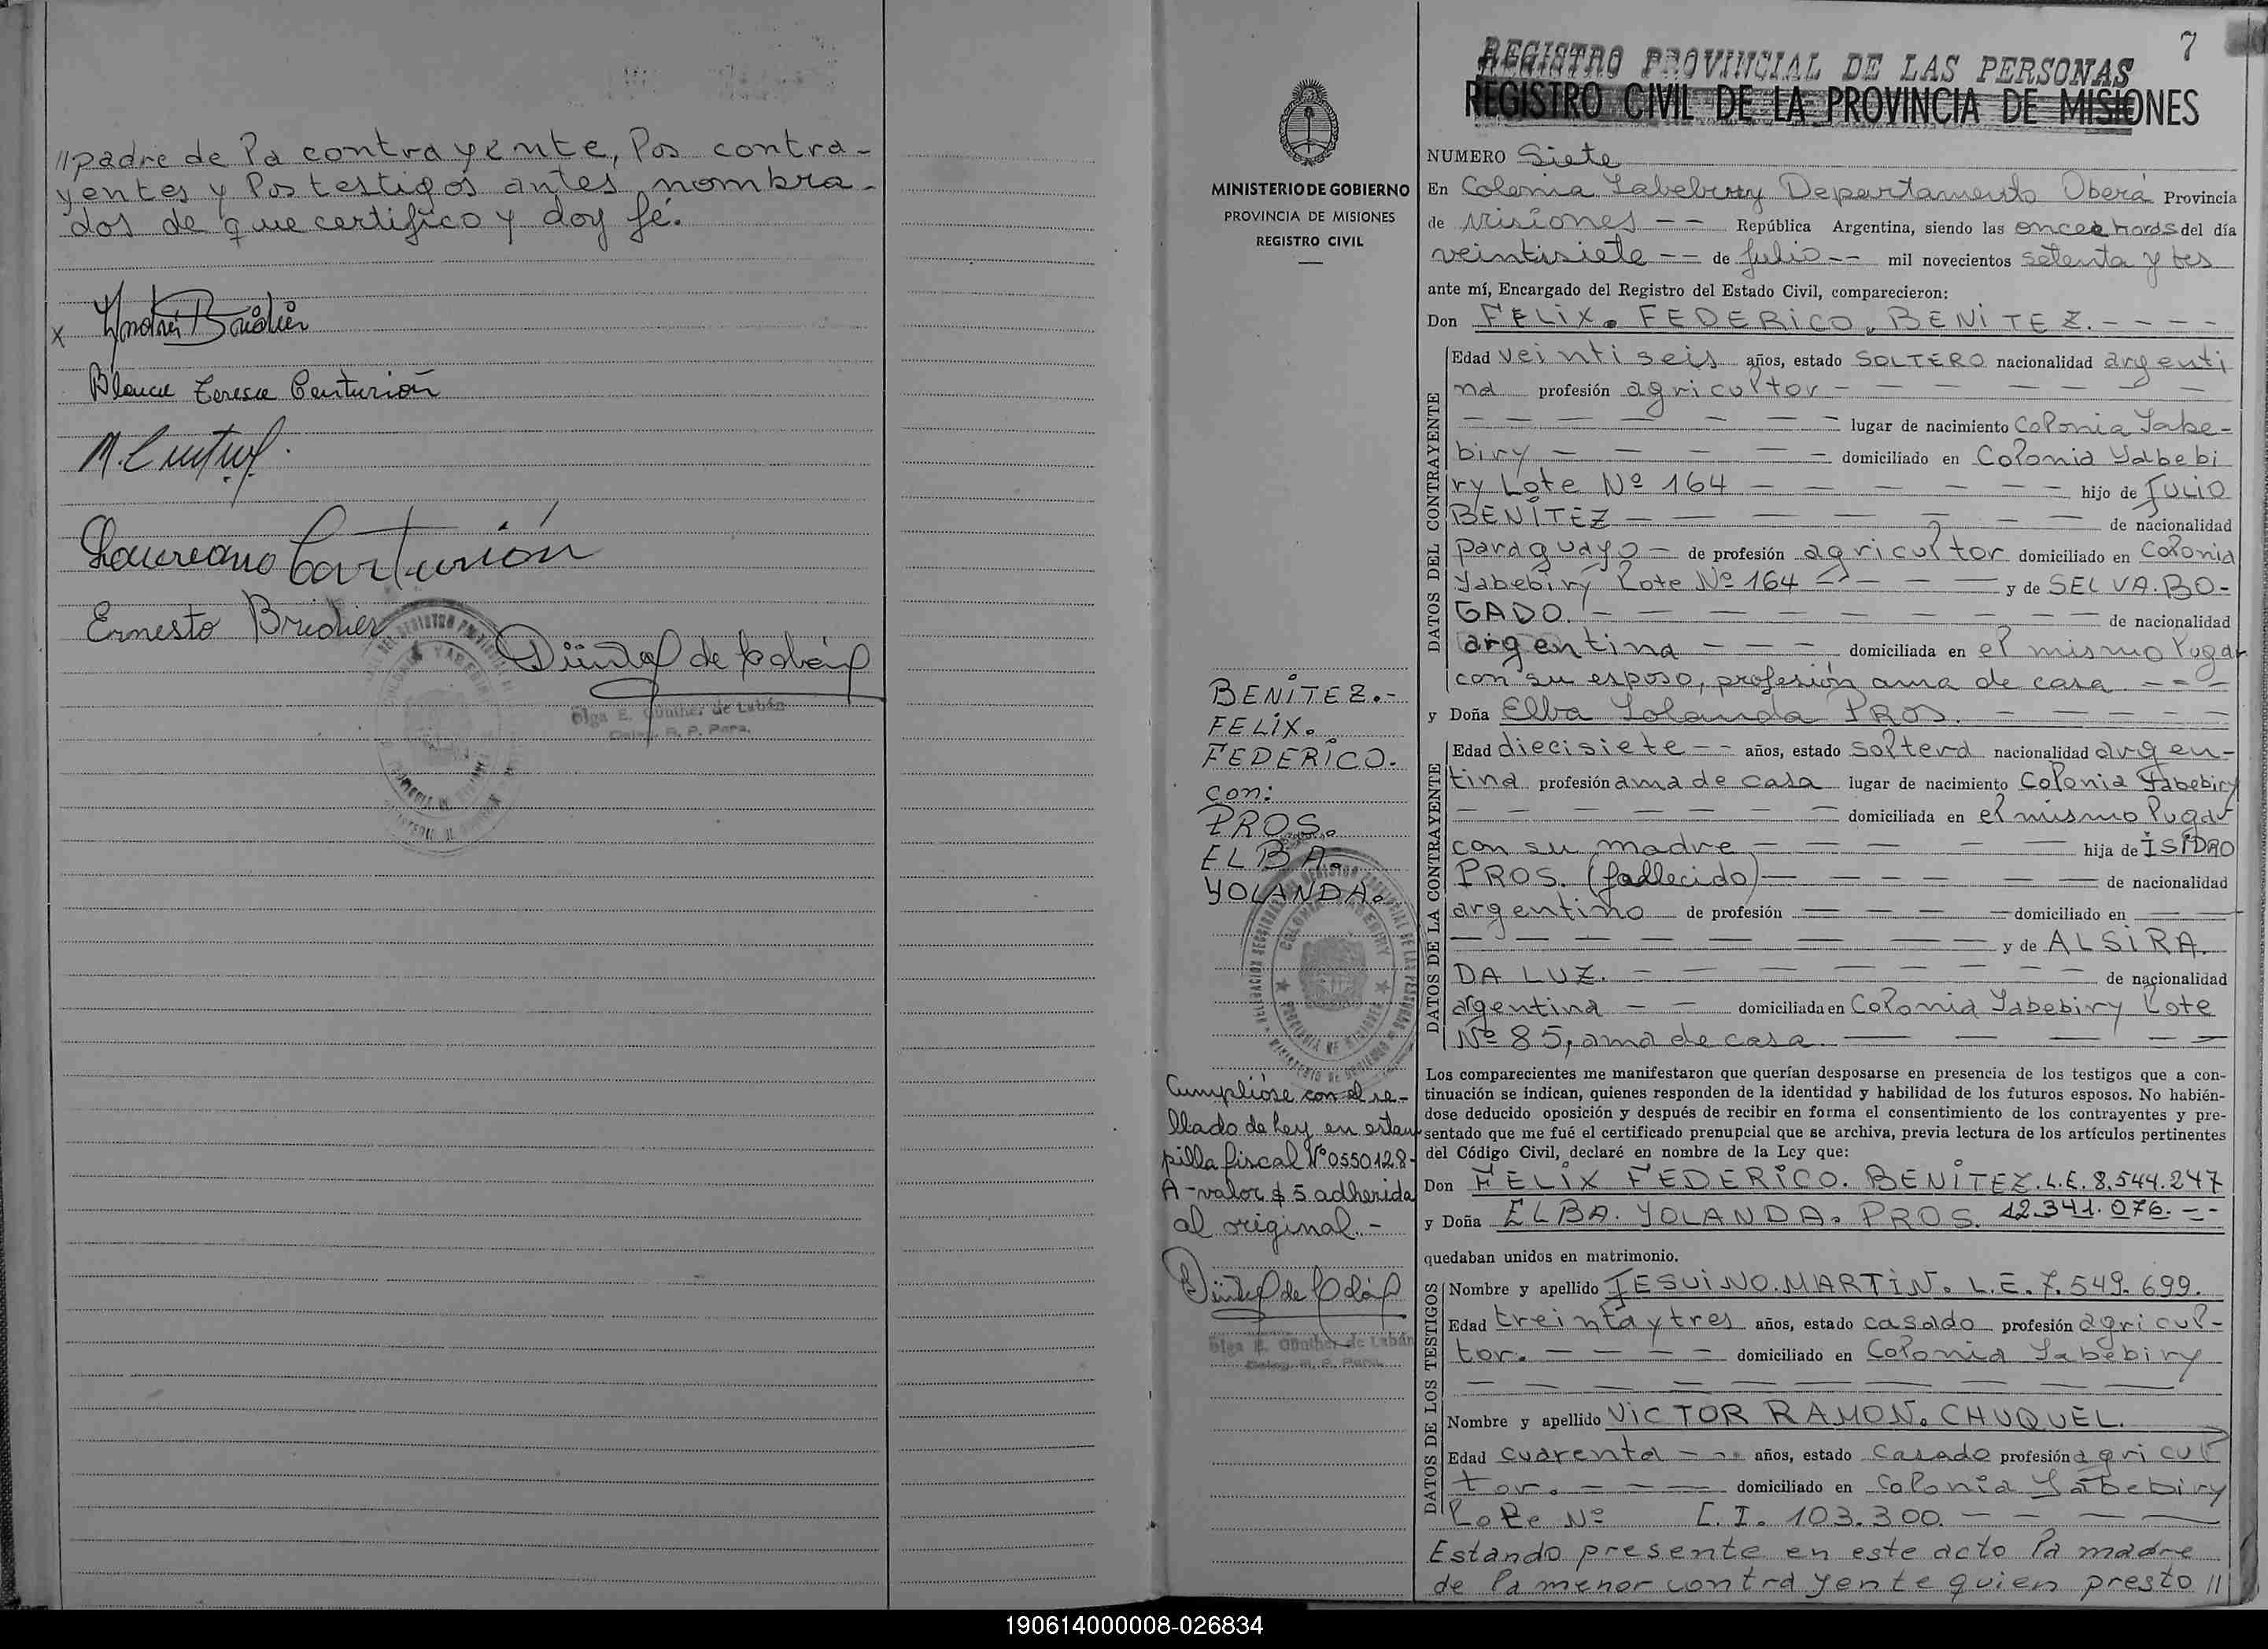 //padre de la contrayente, los contra-
yentes y los testigos antes nombra-
dos de que certifico y doy fé.
x
Blanca Teresa Centurión
Laureano Centurión
Ernesto Bridier
Olga E. Günther de Labán
Deleg. R. P. Pers.
MINISTERIO DE GOBIERNO
PROVINCIA DE MISIONES
REGISTRO CIVIL
BENÍTEZ.-
FELIX.
FEDERICO.
con:
PROS.
ELBA.
YOLANDA.
Cumplióse con el se-
llado de ley en estam
pilla fiscal Nº 0550128-
A-valor $ 5 adherida
al original.-
Olga E. Günther de Labán
Deleg. R. P. Pers.
7
REGISTRO PROVINCIAL DE LAS PERSONAS
REGISTRO CIVIL DE LA PROVINCIA DE MISIONES
NUMERO Siete
En Colonia Yabebiry Departamento Oberá Provincia
de Misiones -- República Argentina, siendo las once horas del día
veintisiete -- de Julio -- mil novecientos setenta y tes
ante mí, Encargado del Registro del Estado Civil, comparecieron:
Don FELIX. FEDERICO. BENITEZ.- - - -
DATOS DEL CONTRAYENTE
Edad veintiseis años, estado SOLTERO nacionalidad argenti
na profesión agricultor - - - - - - -
- - - - - - - lugar de nacimiento Colonia Yabe-
biry - - - - - domiciliado en Colonia Yabebi
ry Lote Nº 164 - - - - - - - hijo de JULIO
BENÍTEZ - - - - - - - - de nacionalidad
paraguayo - de profesión agricultor domiciliado en Colonia
Yabebiry Lote Nº 164 - - - - y de SELVA. BO-
GADO. - - - - - - - - de nacionalidad
argentina - - - domiciliada en el mismo lugar
con su esposo, profesión ama de casa - - -
y Doña Elba Yolanda PROS. - - - - -
DATOS DE LA CONTRAYENTE
Edad diecisiete -- años, estado soltera nacionalidad argen-
tina profesión ama de casa lugar de nacimiento Colonia Yabebiry
- - - - - - - domiciliada en el mismo lugar
con su madre - - - - - hija de ISIDRO
PROS. (fallecido) - - - - - - de nacionalidad
argentino de profesión - - - - domiciliado en - -
- - - - - - - - - y de ALSIRA.
DA LUZ. - - - - - - - - de nacionalidad
argentina - - domiciliada en Colonia Yabebiry Lote
Nº 85, ama de casa. - - - - -
Los comparecientes me manifestaron que querían desposarse en presencia de los testigos que a con-
tinuación se indican, quienes responden de la identidad y habilidad de los futuros esposos. No habién-
dose deducido oposición y después de recibir en forma el consentimiento de los contrayentes y pre-
sentado que me fué el certificado prenupcial que se archiva, previa lectura de los artículos pertinentes
del Código Civil, declaré en nombre de la Ley que:
Don FELIX FEDERICO. BENITEZ. L.E. 8.544.247
y Doña ELBA. YOLANDA. PROS. 12.341.076. - -
quedaban unidos en matrimonio.
DATOS DE LOS TESTIGOS
Nombre y apellido JESUINO. MARTIN. L.E. 7.549.699.
Edad treinta y tres años, estado casado profesión agricul-
tor. - - - - domiciliado en Colonia Yabebiry
- - - - - - - -
Nombre y apellido VICTOR RAMON. CHUQUEL.
Edad cuarenta - - años, estado casado profesión agricul
tor. - - - domiciliado en Colonia Yabebiry
Lote Nº C.I. 103.300. - - - -
Estando presente en este acto la madre
de la menor contrayente quien presto //
190614000008-026834